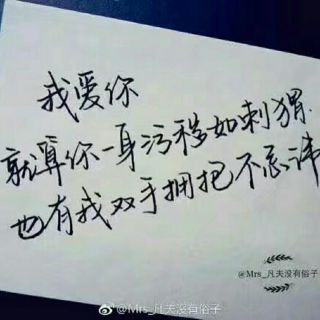 我爱你
就算你一身污秽如刺猬.
也有我双手拥抱不忌讳
@Mrs_凡夫没有俗子
@Mrs_凡夫没有俗子